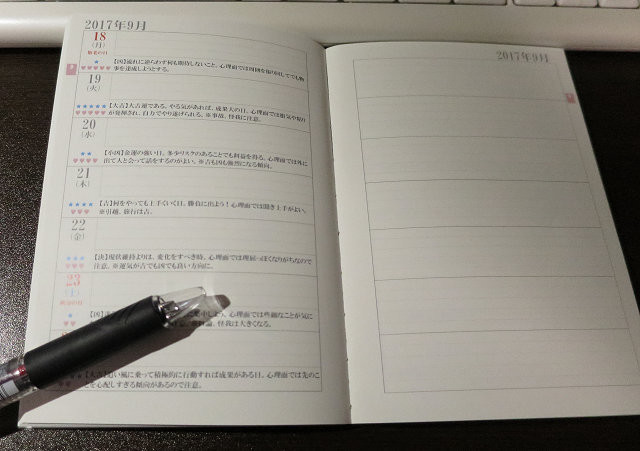 2017年9月
18
(月)
敬老の日
【凶】流れに逆らわず何も期待しないこと。心理面では周囲を振り回してでも物
事を達成しようとする。
19
(火)
【大吉】大吉運である。やる気があれば、成果大の日。心理面では
が発揮され、自力でやり遂げられる。※事故、怪我に注意。
20
(水)
【小凶】金運の強い日。多少リスクのあることでも利益を得る。心理面では外に
出て人と会って話をするのがよい。※吉も凶も極端になる傾向。
21
(木)
【吉】何をやっても上手くいく日。勝負に出よう！心理面では聞き上手がよい。
※引越、旅行は吉。
22
(金)
【決】現状維持よりは、変化をすべき時。心理面では理屈っぽくなりがちなので
注意。※運気が吉でも凶でも良い方向に。
23
(土)
秋分の日
【凶】
中しよう。心理面では些細なことが気に
怪我は大きくなる。
い風に乗って積極的に行動すれば成果がある日。心理面では先のこ
とを心配しすぎる傾向があるので注意。
2017年9月